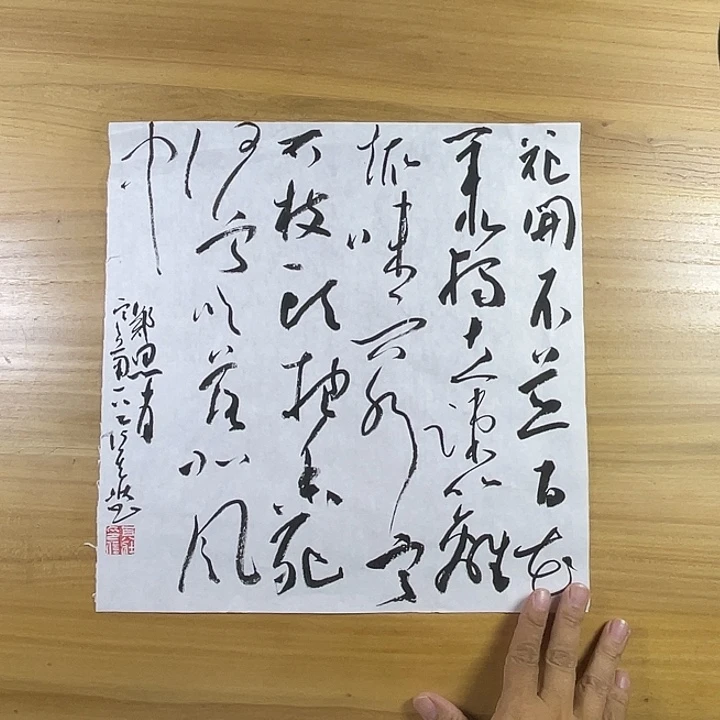 花開不並百花
叢獨立疎籬
趣味窮寧
可枝頭抱香死
何曾吹落北風
中
鄭思肖